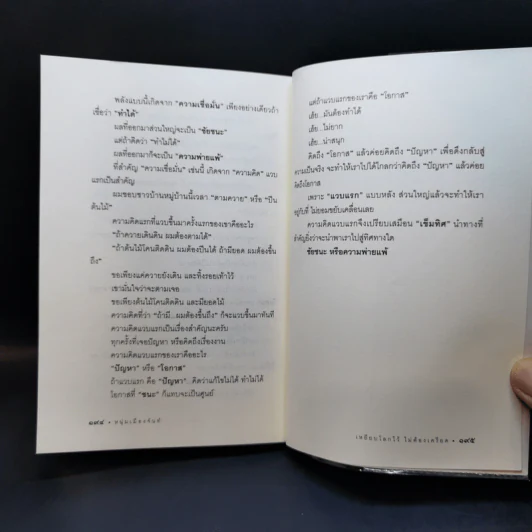 พลังแบบนี้เกิดจาก "ความเชื่อมั่น" เพียงอย่างเดียวถ้า
เชื่อว่า "ทำได้"
ผลที่ออกมาส่วนใหญ่จะเป็น "ชัยชนะ"
แต่ถ้าคิดว่า "ทำไม่ได้"
ผลที่ออกมาก็จะเป็น "ความพ่ายแพ้"
ที่สำคัญ "ความเชื่อมั่น" เช่นนี้ เกิดจาก "ความคิด" แวบ
แรกเป็นสำคัญ
ผมชอบชาวบ้านหมู่บ้านนี้เวลา "ตามควาย" หรือ "ปีน
ต้นไม้"
ความคิดแรกที่แวบขึ้นมาครั้งแรกของเขาคืออะไร
"ถ้าควายเดินดิน ผมต้องตามได้"
"ถ้าต้นไม้โคนติดดิน ผมต้องปีนได้ ถ้ามียอด ผมต้องขึ้น
ถึง"
ขอเพียงแค่ควายยังเดิน และทิ้งรอยเท้าไว้
เขามั่นใจว่าจะตามเจอ
ขอเพียงต้นไม้โคนติดดิน และมียอดไม้
ความคิดที่ว่า "ถ้ามี...ผมต้องขึ้นถึง" ก็จะแวบขึ้นมาทันที
ความคิดแวบแรกเป็นเรื่องสำคัญนะครับ
ทุกครั้งที่เจอปัญหา หรือคิดถึงเรื่องงาน
ความคิดแวบแรกของเราคืออะไร
"ปัญหา" หรือ "โอกาส"
ถ้าแวบแรก คือ "ปัญหา"...คิดว่าแก้ไขไม่ได้ ทำไม่ได้
โอกาสที่ "ชนะ" ก็แทบจะเป็นศูนย์
๑๙๔ • หนุ่มเมืองจันท์
แต่ถ้าแวบแรกของเราคือ "โอกาส"
เฮ้ย...มันต้องทำได้
เฮ้ย...ไม่ยาก
เฮ้ย...น่าสนุก
คิดถึง "โอกาส" แล้วค่อยคิดถึง "ปัญหา" เพื่อดึงกลับสู่
ความเป็นจริง จะทำให้เราไปได้ไกลกว่าคิดถึง "ปัญหา" แล้วค่อย
คิดถึงโอกาส
เพราะ "แวบแรก" แบบหลัง ส่วนใหญ่แล้วจะทำให้เรา
อยู่กับที่ ไม่ยอมขยับเคลื่อนเลย
ความคิดแวบแรกจึงเปรียบเสมือน "เข็มทิศ" นำทางที่
สำคัญยิ่งว่าจะนำพาเราไปสู่ทิศทางใด
ชัยชนะ หรือความพ่ายแพ้
เหลี่ยมโลกไว้ ไม่ต้องเครียด • ๑๙๕